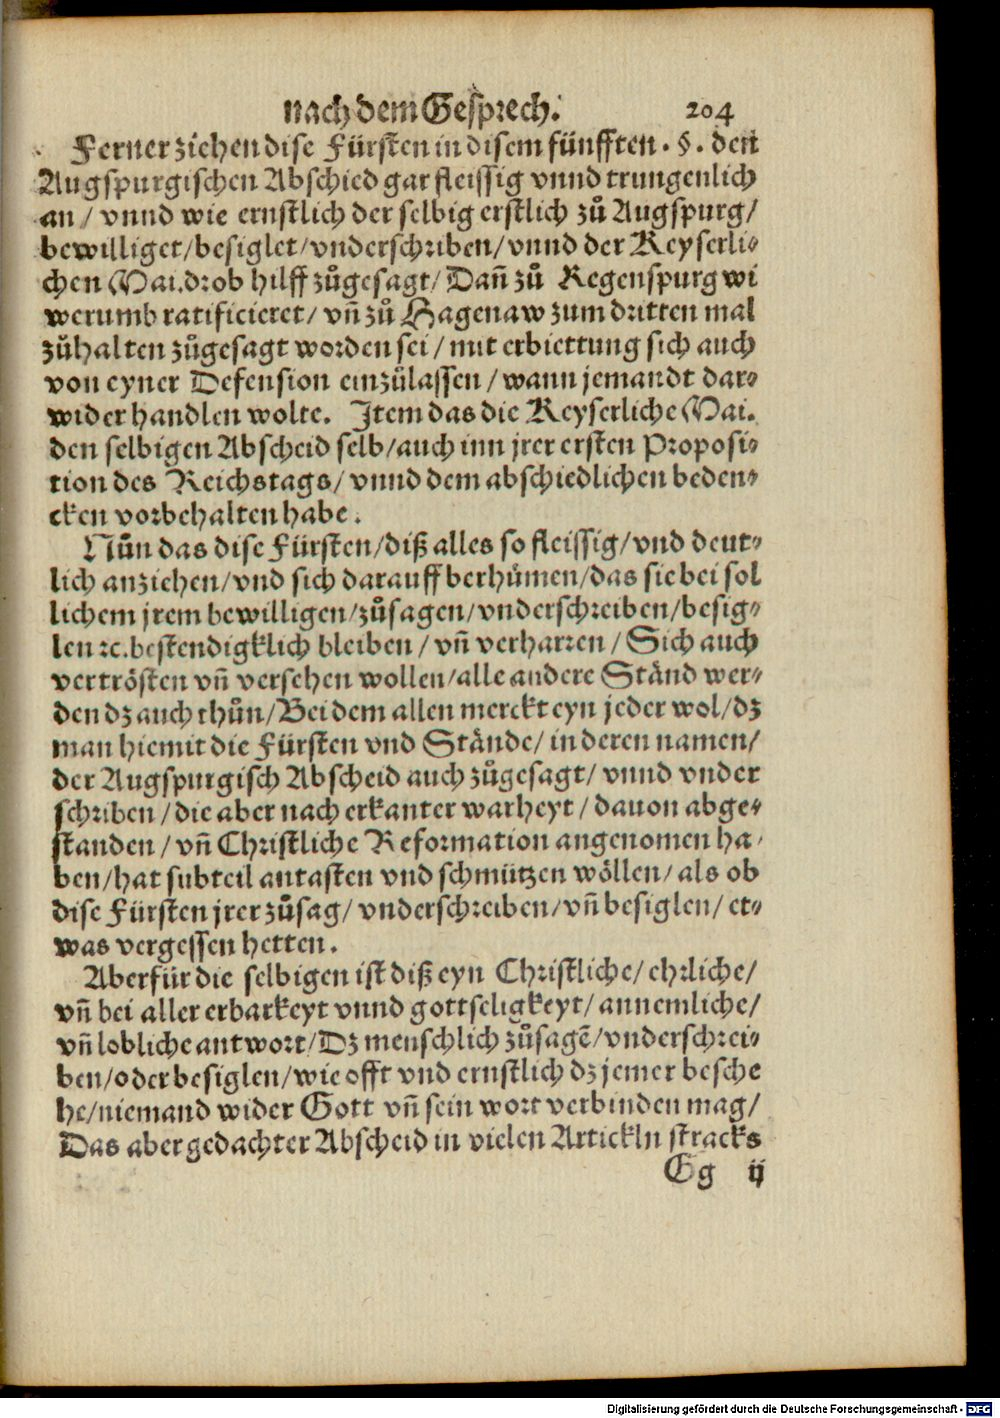 nach dem Gesprech. 204
Ferner ziehen dise Fürsten in disem fünfften. §. den
Augspurgischen Abschied gar fleissig vnnd trungenlich
an / vnnd wie ernstlich der selbig erstlich zů Augspurg/
bewilliget/besiglet/vnderschriben/vnnd der Keyserli⸗
chen Mai. drob hilff zůgesagt/ Dañ zů Regenspurg wi
werumb ratificieret/ vñ zů Hagenaw zum dritten mal
zůhalten zůgesagt worden sei / mit erbiettung sich auch
von eyner Defension einzůlassen / wann jemandt dar⸗
wider handlen wolte. Item das die Keyserliche Mai.
den selbigen Abscheid selb/auch inn jrer ersten Proposi⸗
tion des Reichstags/ vnnd dem abschiedlichen beden⸗
cken vorbehalten habe.
Nůn das dise Fürsten/diß alles so fleissig/vnd deut⸗
lich anziehen/vnd sich darauff berhümen/das sie bei sol
lichem jrem bewilligen/zůsagen/vnderschreiben/besig⸗
len ꝛc. bestendigklich bleiben / vñ verharren / Sich auch
vertrösten vñ versehen wollen/alle andere Ständ wer⸗
den dz auch thůn/Bei dem allen merckt eyn jeder wol/dz
man hiemit die Fürsten vnd Stände/ in deren namen/
der Augspurgisch Abscheid auch zůgesagt/ vnnd vnder
schriben / die aber nach erkanter warheyt / dauon abge⸗
standen / vñ Christliche Reformation angenomen ha⸗
ben/hat subteil antasten vnd schmützen wöllen/ als ob
dise Fürsten jrer zůsag/ vnderschreiben/vñ besiglen/ et⸗
was vergessen hetten.
Aber für die selbigen ist diß eyn Christliche/ ehrliche/
vñ bei aller erbarkeyt vnnd gottseligkeyt/ annemliche/
vñ lobliche antwort/Dz menschlich zůsagẽ/vnderschrei⸗
ben/oder besiglen/wie offt vnd ernstlich dz jemer besche
he/niemand wider Gott vñ sein wort verbinden mag/
Das aber gedachter Abscheid in vielen Artickln stracks
Gg ij
Digitalisierung gefördert durch die Deutsche Forschungsgemeinschaft - DFG